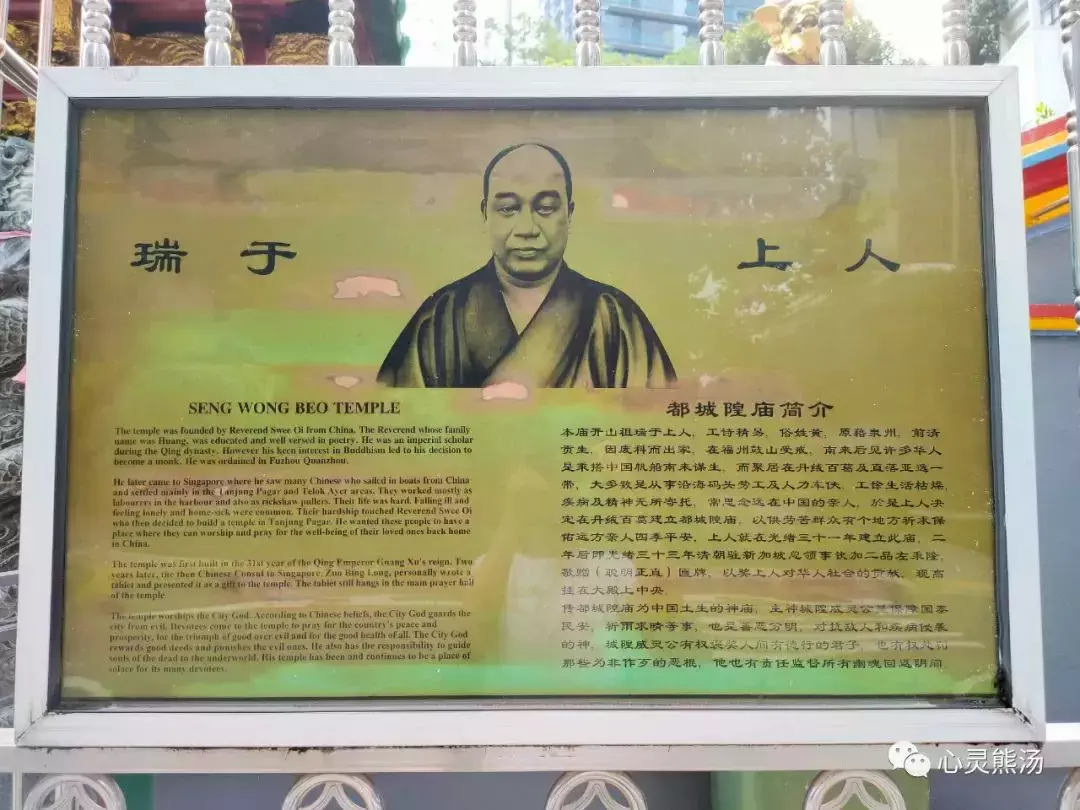 瑞于 上人
SENG WONG BEO TEMPLE
The temple was founded by Reverend Swee Oi from China. The Reverend whose family
name was Huang, was educated and well versed in poetry. He was an imperial scholar
during the Qing dynasty. However his keen interest in Buddhism led to his decision to
become a monk. He was ordained in Fuzhou Quanzhou.
He later came to Singapore where he saw many Chinese who sailed in boats from China
and settled mainly in the Tanjung Pagar and Telok Ayer areas. They worked mostly as
labourers in the harbour and also as rickshaw pullers. Their life was hard. Falling ill and
feeling lonely and home-sick were common. Their hardship touched Reverend Swee Oi
who then decided to build a temple in Tanjung Pagar. He wanted these people to have a
place where they can worship and pray for the well-being of their loved ones back home
in China.
The temple was first built in the 31st year of the Qing Emperor Guang Xu's reign. Two
years later, the then Chinese Consul to Singapore, Zuo Bing Long, personally wrote a
tablet and presented it as a gift to the temple. The tablet still hangs in the main prayer hall
of the temple
The temple worships the City God. According to Chinese beliefs, the City God guards the
city from evil. Devotees come to the temple to pray for the country's peace and
prosperity, for the triumph of good over evil and for the good health of all. The City God
rewards good deeds and punishes the evil ones. He also has the responsibility to guide
souls of the dead to the underworld. His temple has been and continues to be a place of
solace for its many devotees.
都城隍庙简介
本庙开山祖瑞于上人，工诗精易，俗姓黄，原籍泉州，前清
贡生，因废科而出家，在福州鼓山受戒，南来后见许多华人
是乘搭中国帆船南来谋生，而聚居在丹绒百葛及直落亚逸一
带，大多数是从事沿海码头劳工及人力车伕，工馀生活枯燥，
疾病及精神无所寄托，常思念远在中国的亲人，於是上人决
定在丹绒百葛建立都城隍庙，以供劳苦群众有个地方祈求保
佑远方亲人四季平安，上人就在光绪三十一年建立此庙，二
年后即光绪三十三年清朝驻新加坡总领事钦加二品左秉隆，
敬赠（聪明正直）匾牌，以奖上人对华人社会的贡献，现高
挂在大殿上中央。
传都城隍庙为中国土生的神庙，主神城隍威灵公是保障国泰
民安，祈雨求晴等事，也是善恶分明，对抗敌人和疾病侵袭
的神，城隍威灵公有权褒奖人间有德行的君子，也有权处罚
那些为非作歹的恶棍，他也有责任监督所有幽魂回返阴间
心灵熊汤